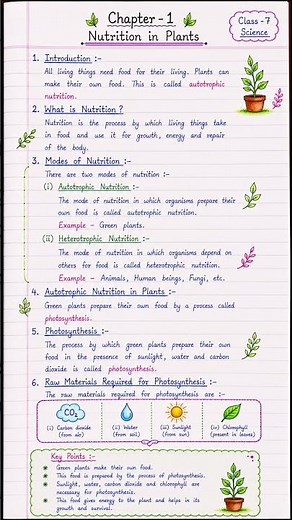 Chapter - 1
Nutrition in Plants
Class - 7
Science
1. Introduction :-
All living things need food for their living. Plants can
make their own food. This is called autotrophic
nutrition.
2. What is Nutrition ?
Nutrition is the process by which living things take
in food and use it for growth, energy and repair
of the body.
3. Modes of Nutrition :-
There are two modes of nutrition :-
(i) Autotrophic Nutrition :-
The mode of nutrition in which organisms prepare their
own food is called autotrophic nutrition.
Example - Green plants.
(ii) Heterotrophic Nutrition :-
The mode of nutrition in which organisms depend on
others for food is called heterotrophic nutrition.
Example - Animals, Human beings, Fungi, etc.
4. Autotrophic Nutrition in Plants :-
Green plants prepare their own food by a process called
photosynthesis.
5. Photosynthesis :-
The process by which green plants prepare their own
food in the presence of sunlight, water and carbon
dioxide is called photosynthesis.
6. Raw Materials Required for Photosynthesis :-
The raw materials required for photosynthesis are :-
CO₂
(i) Carbon dioxide
(from air)
(ii) Water
(from soil)
(iii) Sunlight
(from sun)
(iv) Chlorophyll
(present in leaves)
Key Points :-
Green plants make their own food.
This food is prepared by the process of photosynthesis.
Sunlight, water, carbon dioxide and chlorophyll are
necessary for photosynthesis.
This food gives energy to the plant and helps in its
growth and survival.